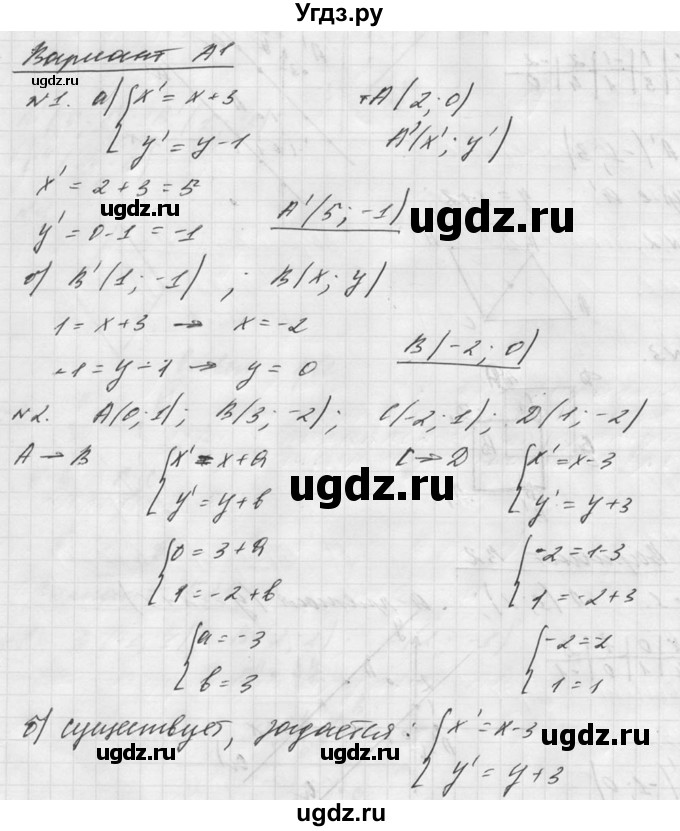 Угдз.ру
Вариант А1
ugdz.ru
№1. а) { x' = x + 3
y' = y - 1
A(2; 0)
A'(x'; y')
x' = 2 + 3 = 5
ugdz.ru
y' = 0 - 1 = -1
A'(5; -1)
ugdz.ru
б) B'(1; -1) ; B(x; y)
1 = x + 3 → x = -2
-1 = y - 1 → y = 0
B(-2; 0)
№2. A(0; 1); B(3; -2); C(-2; 1); D(1; -2)
A → B { x' = x + a
y' = y + b
C → D { x' = x - 3
y' = y + 3
ugdz.ru
{ 0 = 3 + a
1 = -2 + b
{ -2 = 1 - 3
1 = -2 + 3
{ a = -3
b = 3
{ -2 = -2
1 = 1
б) существует, задается: { x' = x - 3
y' = y + 3
ugdz.ru
ugdz.ru
ugdz.ru
ugdz.ru